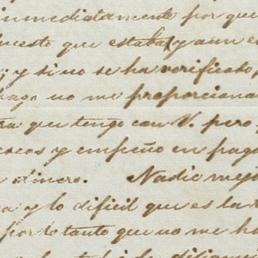 inmediatamente por que
puesto que estaba y aun e
y si no se ha verificado,
pago no me proporciona
que tengo con V. pero
deseos y empeño en paga
dinero. Nadie mejo
a y lo dificil que es la
por lo tanto que no me ha
de diligenci